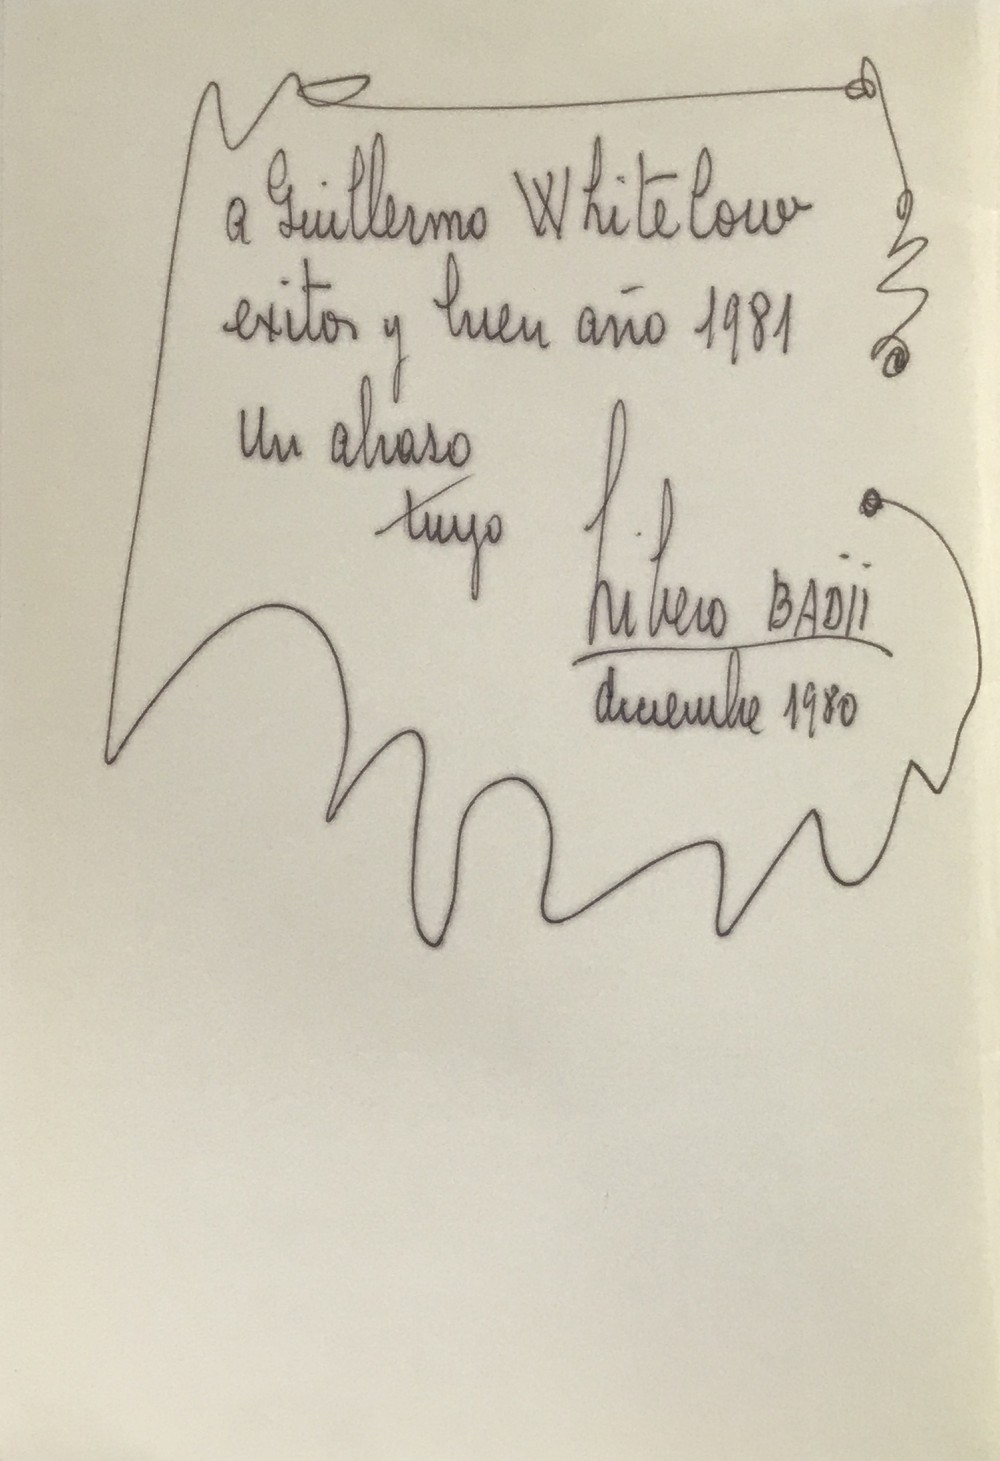 a Guillermo Whitelow
exitos y buen año 1981
Un abraso
tuyo
Libero BADII
diciembre 1980